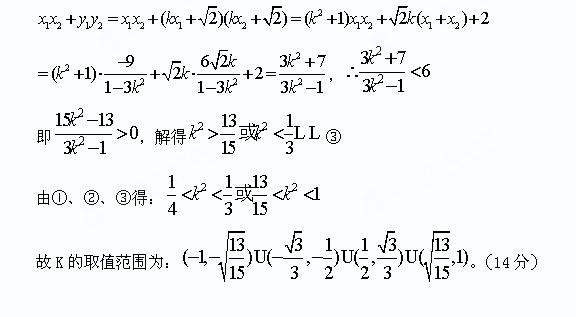 x₁x₂+y₁y₂=x₁x₂+(kx₁+√2)(kx₂+√2)=(k²+1)x₁x₂+√2k(x₁+x₂)+2
=(k²+1)·\frac{-9}{1-3k²}+√2k·\frac{6√2k}{1-3k²}+2=\frac{3k²+7}{3k²-1}，∴\frac{3k²+7}{3k²-1}<6
即\frac{15k²-13}{3k²-1}>0，解得k²>\frac{13}{15}或k²<\frac{1}{3}L L ③
由①、②、③得：\frac{1}{4}<k²<\frac{1}{3}或\frac{13}{15}<k²<1
故K的取值范围为：(-1,-√\frac{13}{15})U(-\frac{√3}{3},-\frac{1}{2})U(\frac{1}{2},\frac{√3}{3})U(√\frac{13}{15},1)。(14分)